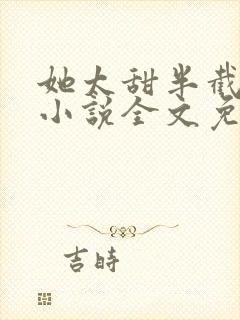 她太甜半截
小说全文免
吉時